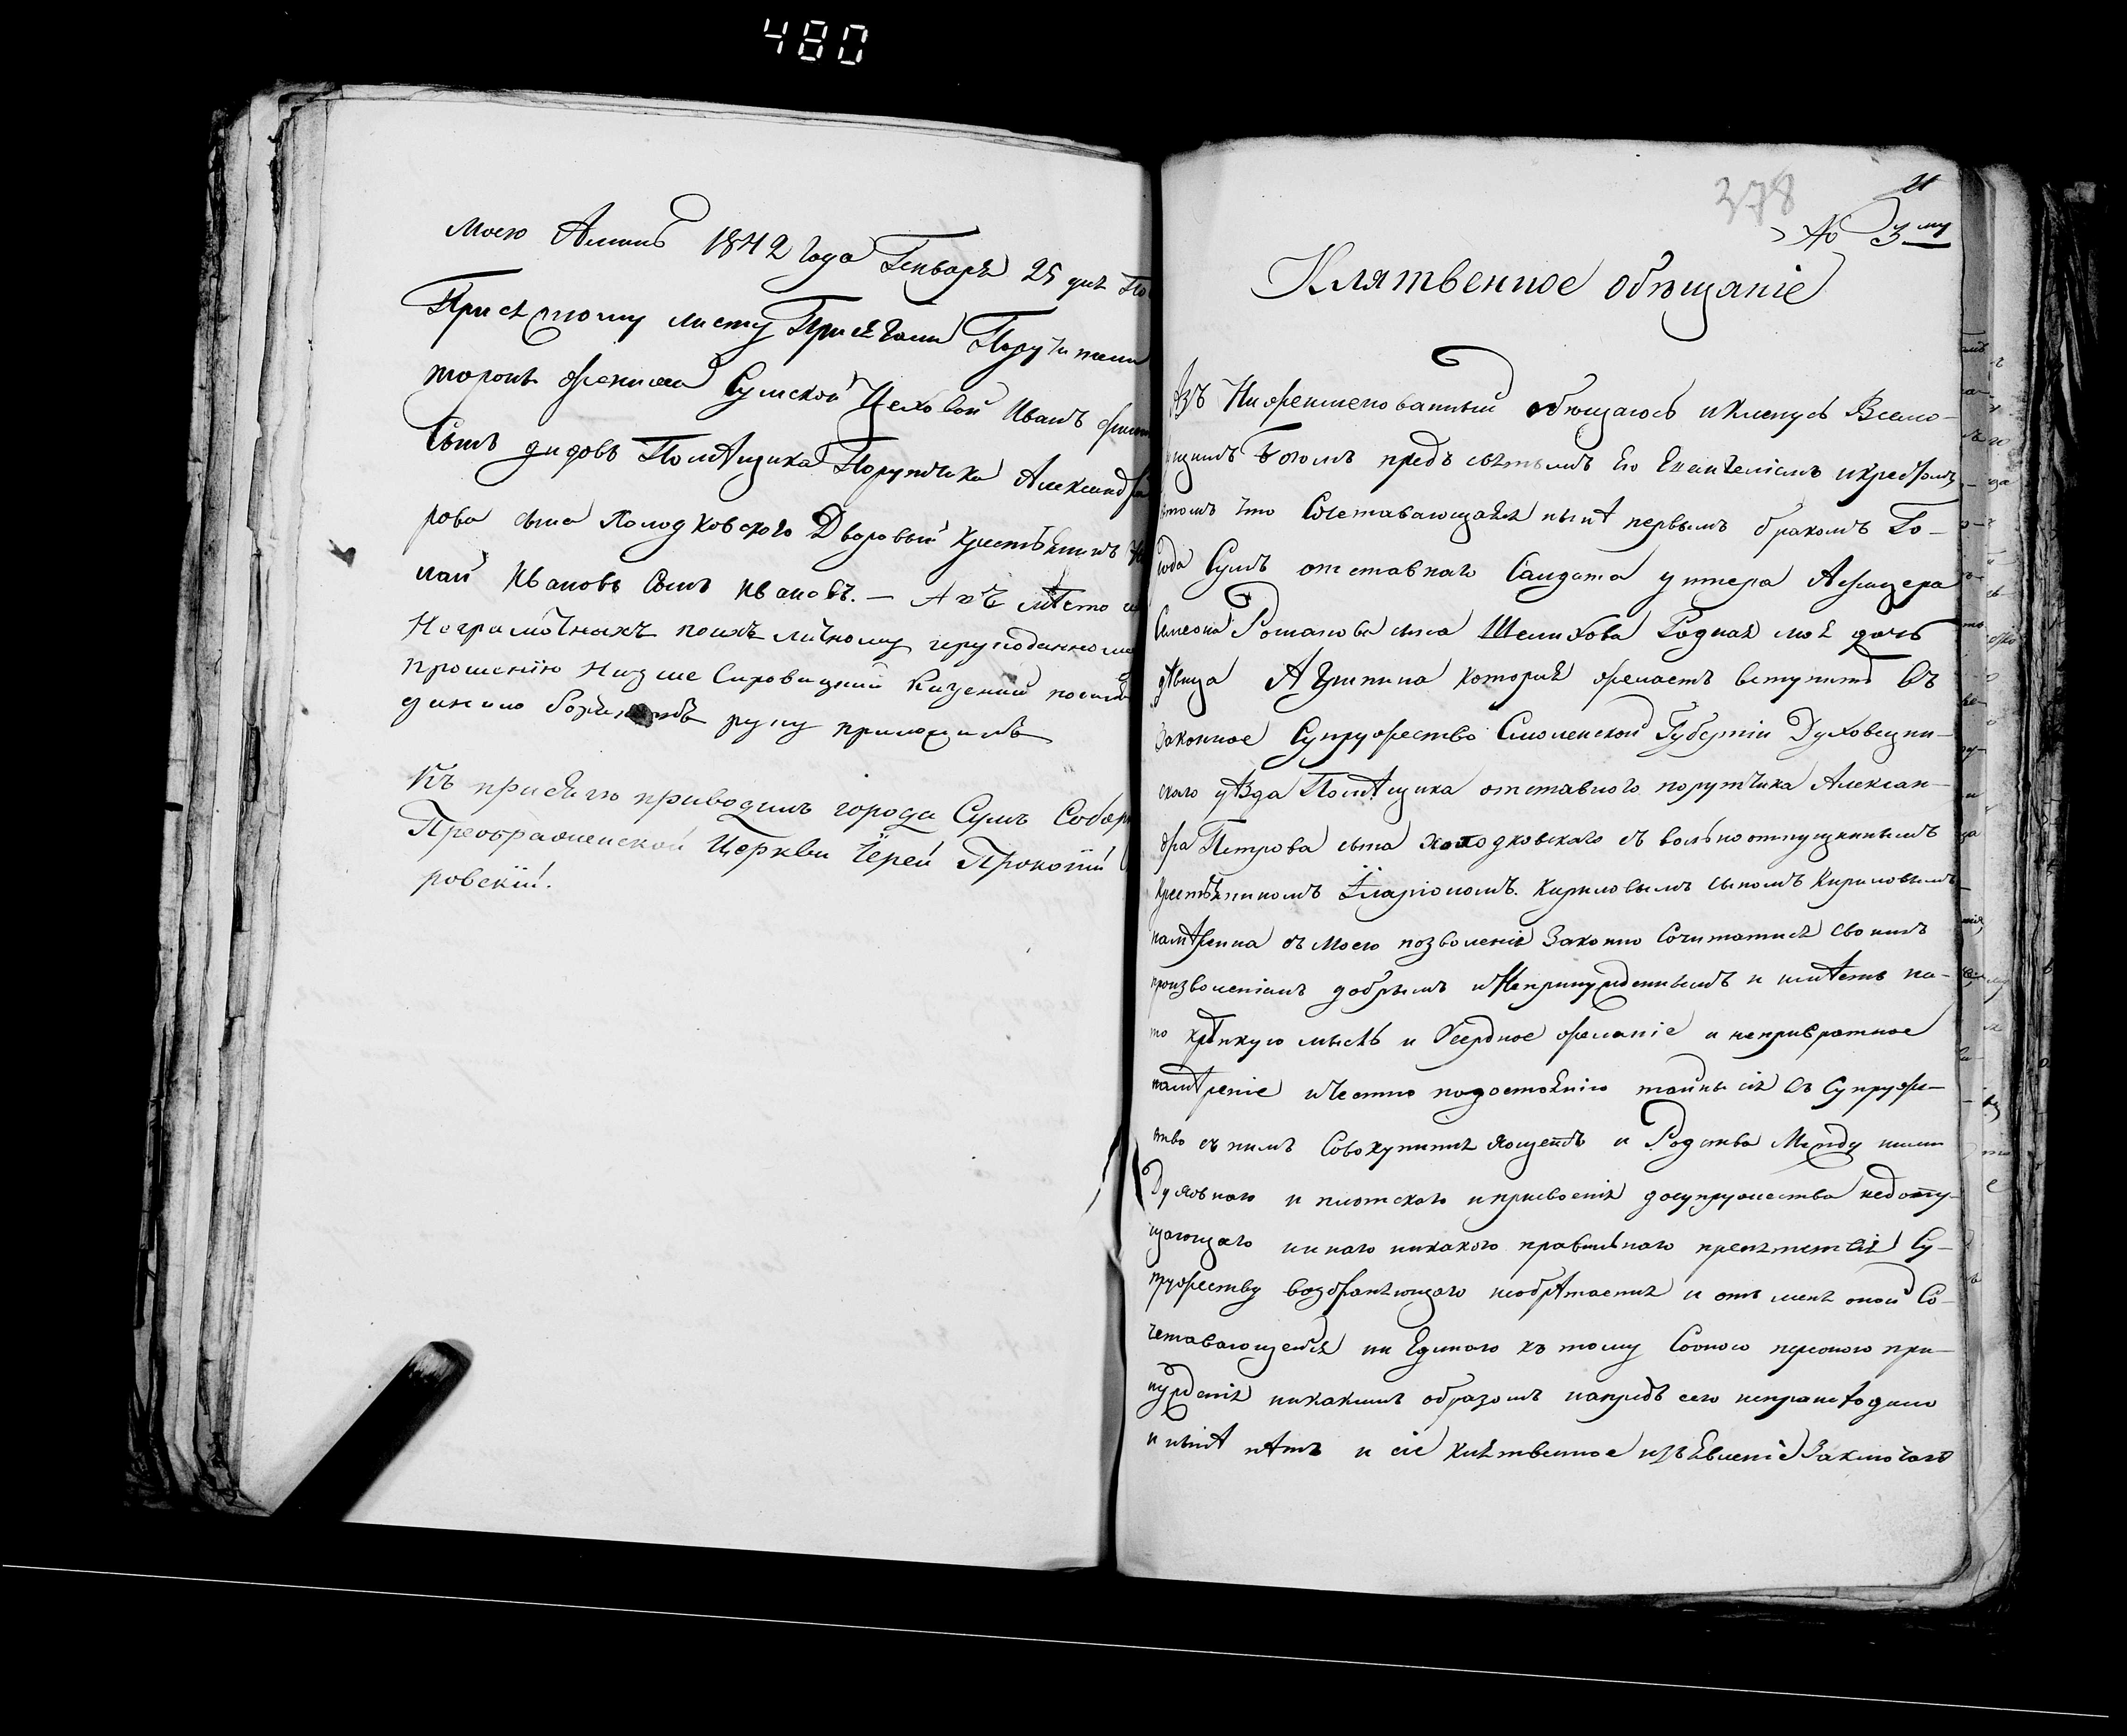 480
моею Аминь 1842 года Генваря 25 дня По
Присяжному листу Присягали Поручители
торонѣ жениха Сумской Цеховой Иванъ
Сынъ дидовъ Помѣщика Порутчика Александра
рова сына Холодковского Дворовый крестьянинъ
лай Ивановъ Сынъ Ивановъ. – А въ мѣсто
Неграмотныхъ поихъ личному ирукоданному
прошенію Низше Сыровацкий Казенный поселянинъ
руку приложилъ
Къ присягѣ приводилъ города Сумъ Собор
Преображенской Церкви Іерей Прокопій
ровскій.
378
21
До 3му
Клятвенное обѣщаніе
Азъ Нижеименованный обѣщаюсь и клянусь Всемо-
гущимъ Богомъ предъ святымъ Его Евангеліемъ и крестомъ
втомъ что Сочетавающаяся нынѣ первымъ бракомъ Го-
рода Сумъ отставнаго Салдата унтера Афицера
Симеона Романова сына Шелихова Родная моя дочь
дѣвица Агрипина которая желаетъ вступить въ
Законное Супружество Смоленской Губерніи Духовщин-
скаго уѣзда Помѣщика отставного порутчика Алексан-
дра Петрова сына Холодковскаго съ вольноотпущеннымъ
крестьяниномъ Іларіономъ Кириловымъ сыномъ Кириловымъ
намѣрена съ моего позволенія Законно Сочитатися своимъ
произволеніемъ добрымъ и Непринужденнымъ и имѣетъ на-
то крѣпкую мысль и Усердное желаніе и непривратное
намѣреніе и Честно подостоянію тайны сія въ Супруже-
ство съ нимъ Совокупитися хощетъ и Родства Между ними
Духовнаго и плотскаго и присвоенія досупружества недопу-
щающаго ни наго никакого правильнаго препятствія Су-
пружеству возбраняющаго необрѣтается и отъ меня оной Со-
четавающейся ни Единаго къ тому Сооного персоного при-
нужденія никакимъ образомъ напредъ сего непроисходило
и нынѣ нѣтъ и сіе клятвенное изъявленіе Заключаю